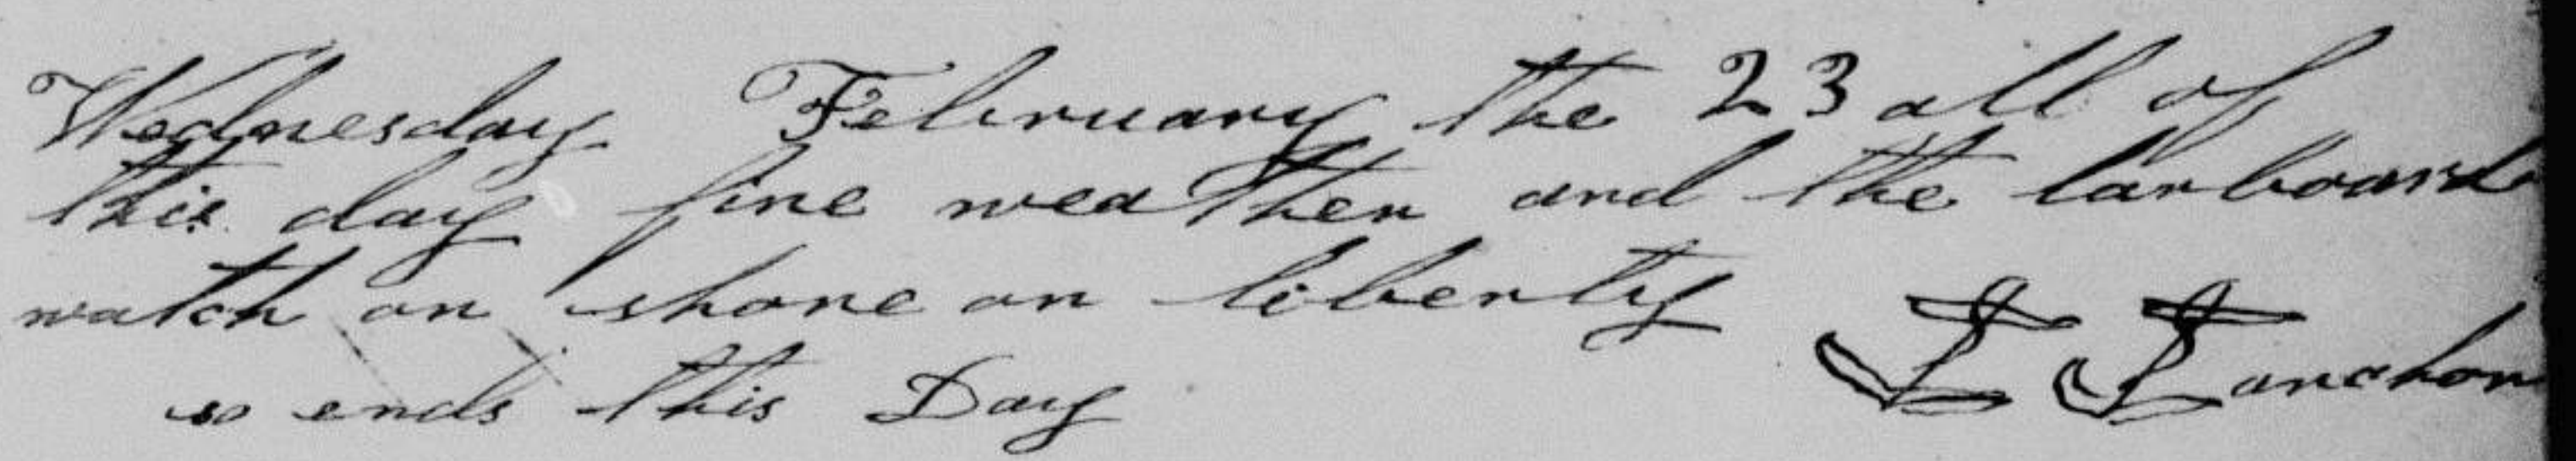 Wednesday February the 23 all of
this day fine weather and the larboard
watch on shore on liberty
so ends this Day anchor